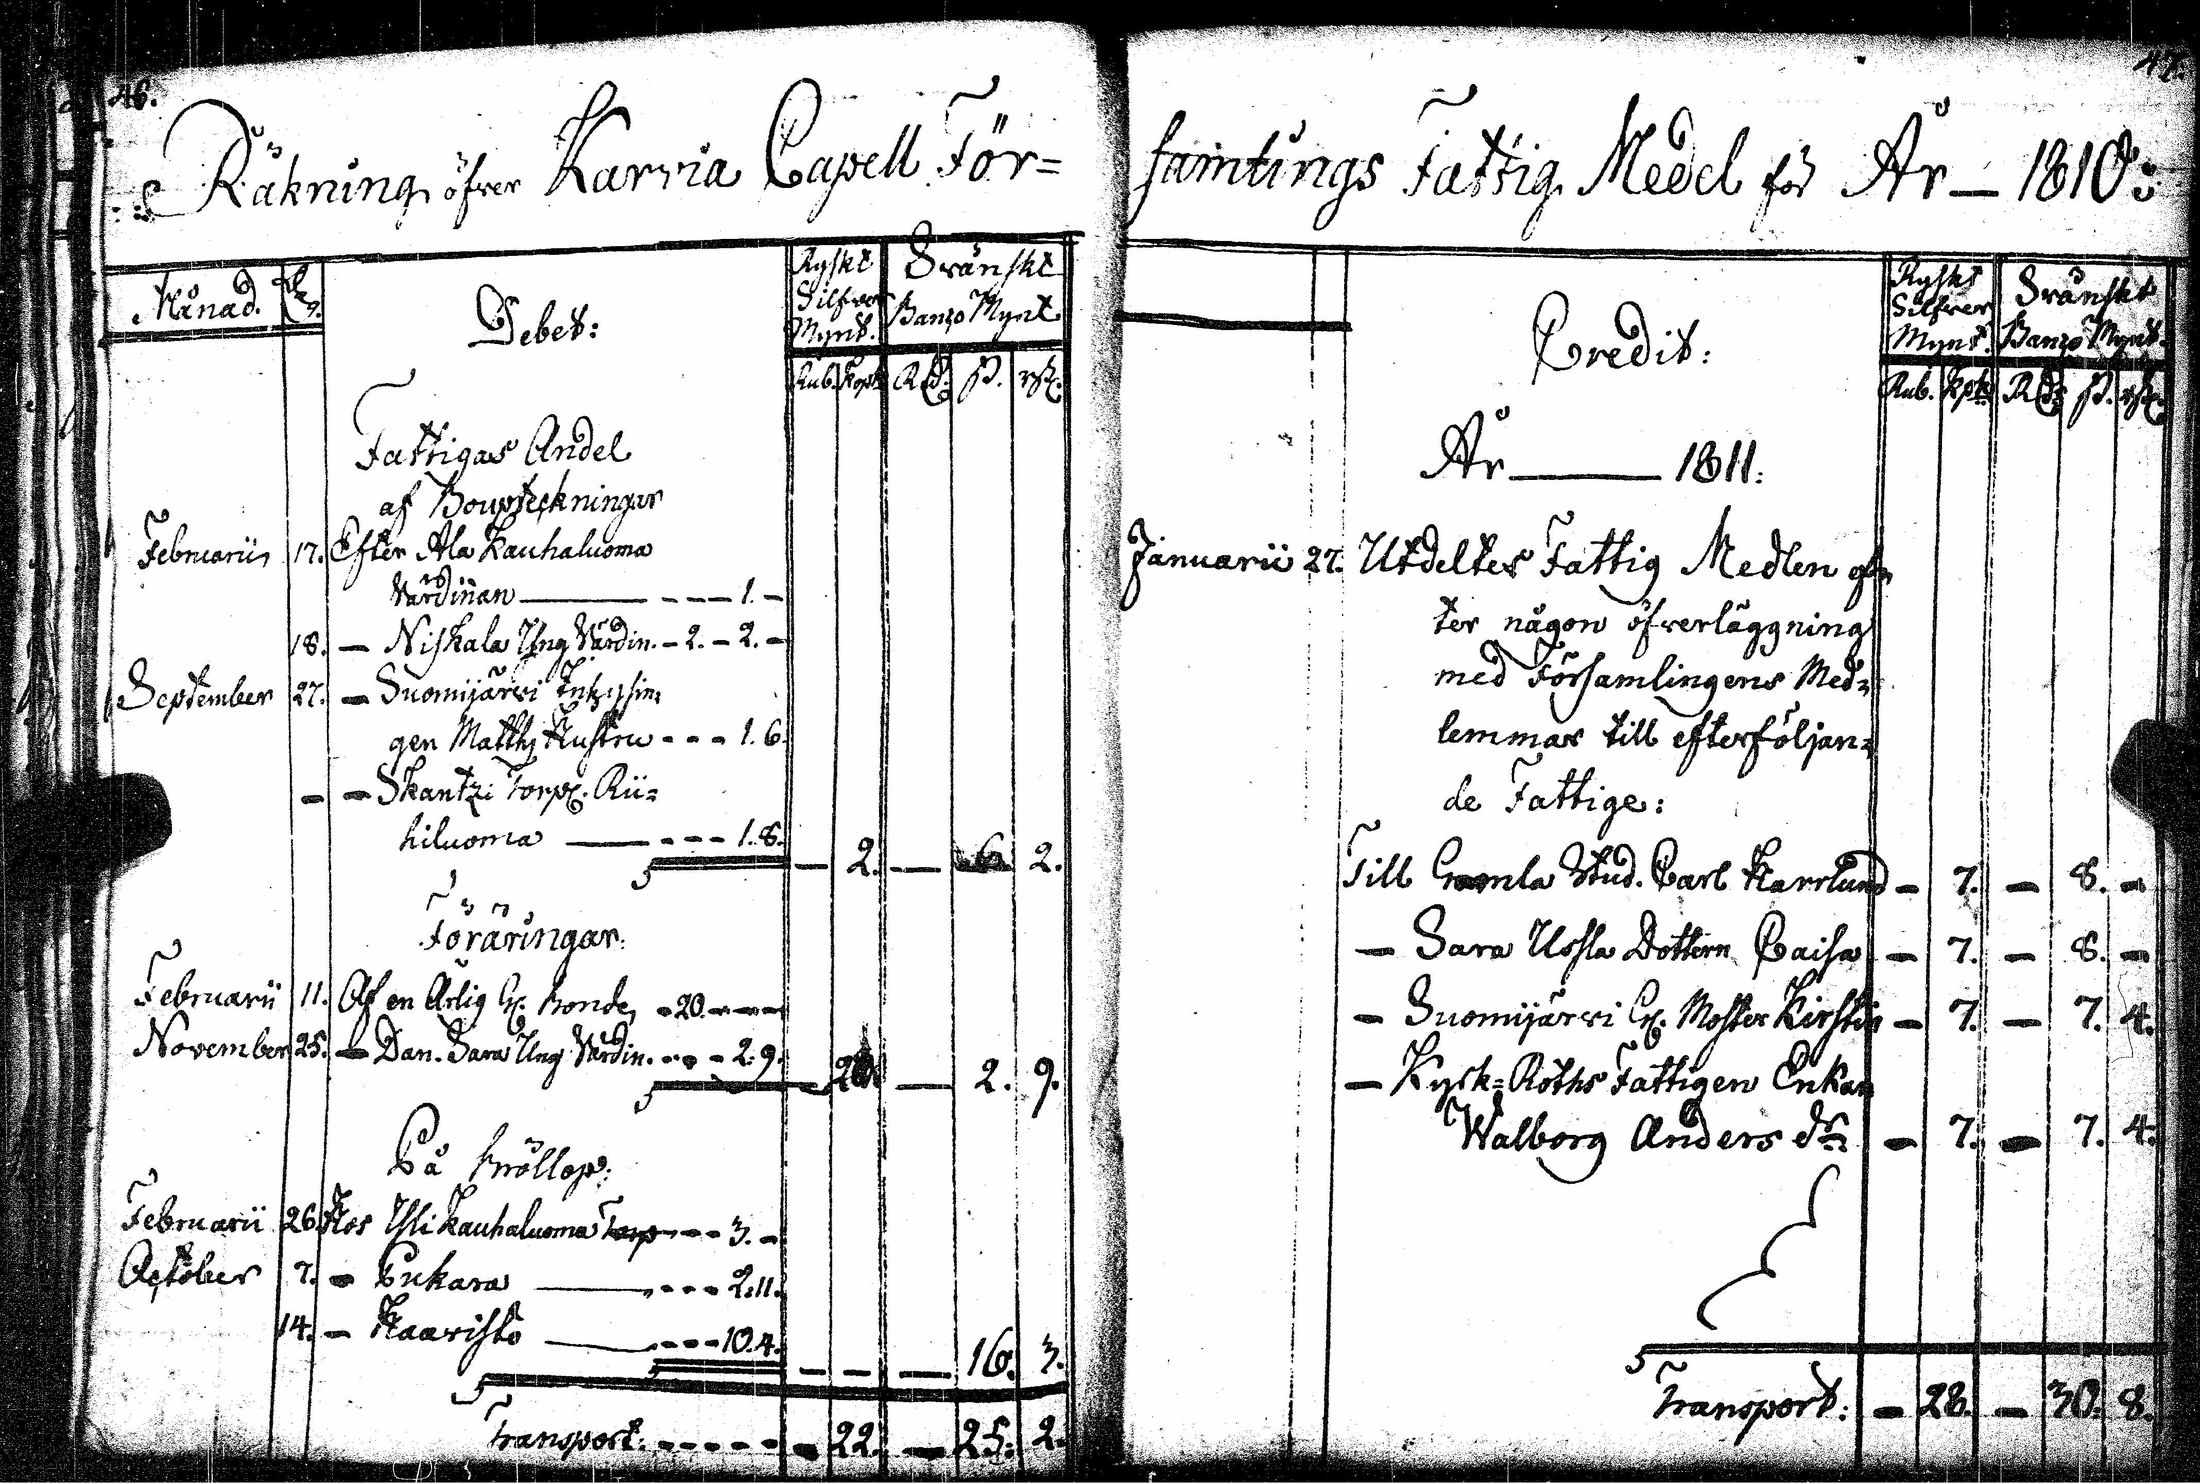 46.
Räkning öfver Karvia Capell För=
Månad. Dag. Debet: Ryskt Silfver Mynt. Svänskt Banco Mynt.
Rub. Kop. Rd. ß. rst.
Fattigas Andel
af Bouptekningar
Februarii 17. Efter Ala Kauhaluoma
Värdinan — — — 1. —
18. — Niskala Ung Värdin. — 2. — 2. —
September 27. — Suomijärvi Inhysin=
gen Matths Hustru - - - 1. 6.
— — Skantzi Torp. Rii=
hiluoma — - - - 1. 8.
— 2. — 6. 2.
Föräringar.
Februarii 11. Af en Ärlig G. Bonde, - 20. - - -
November 25. — Dan. Sara Ung Värdin. - - - 2. 9.
20. — 2. 9.
På Bröllop:
Februarii 26. Hos Yli Kauhaluoma Torp - - - 3. -
October 7. — Pukara — - - - 2. 11.
14. — Kaaristo — - - - 10. 4.
— — — 16. 3.
Transport: - - - - - — 22. — 25. 2.
47.
samlings Fattig Medel för År — 1810:
Credit: Ryskt Silfver Mynt. Svänskt Banco Mynt.
Rub. Kpk. Rd. ß. rst.
År — 1811.
Januarii 27. Utdeltes Fattig Medlen ef=
ter någon öfverläggning
med Församlingens Med=
lemmar till efterföljan=
de Fattige:
Till Gamla Stud. Carl Harrlund — 7. — 8. —
— Sara Ussla Dottern Caisa — 7. — 8. —
— Suomijärvi G. Moster Kirstin — 7. — 7. 4.
— Kyrk=Roths Fattigen Enkan
Walborg Anders dr. — 7. — 7. 4.
Transport: — 28. — 30. 8.